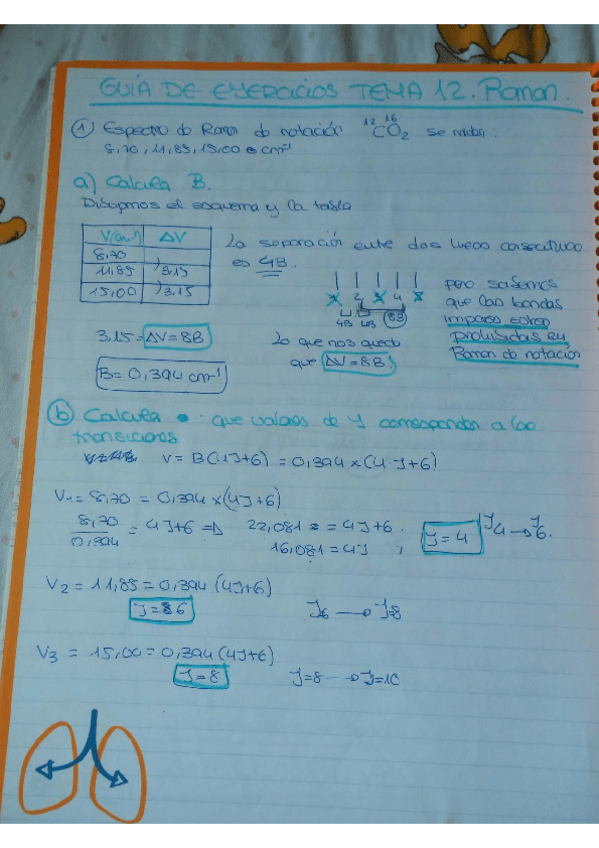 GUÍA DE EJERCICIOS TEMA 12. Raman.
① Espectro de Raman de rotación ¹²C¹⁶O₂ se miden
8,70, 11,85, 15,00 cm⁻¹
a) Calcula B.
Disponemos el esquema y la tabla
V(cm⁻¹) ΔV
8,70
11,85 3.15
15,00 3,15
La separación entre dos lineas consecutivas
es 4B.
2 4
4B 4B 8B
pero sabemos
que las bandas
impares estan
prohibidas en
Raman de rotación
3.15 = ΔV = 8B
B = 0,394 cm⁻¹
Lo que nos queda
que ΔV = 8B.
b) Calcula : que valores de J corresponden a las
transiciones
V = B(4J+6) = 0,394 x (4·J+6)
V₁ = 8,70 = 0,394 x (4J+6)
8,70/0,394 = 4J+6 ⇒ 22,081 = 4J+6.
16,081 = 4J , J = 4 J4 → J6.
V₂ = 11,85 = 0,394 (4J+6)
J = 6 J6 → J=8
V₃ = 15,00 = 0,394 (4J+6)
J = 8 J=8 → J=10